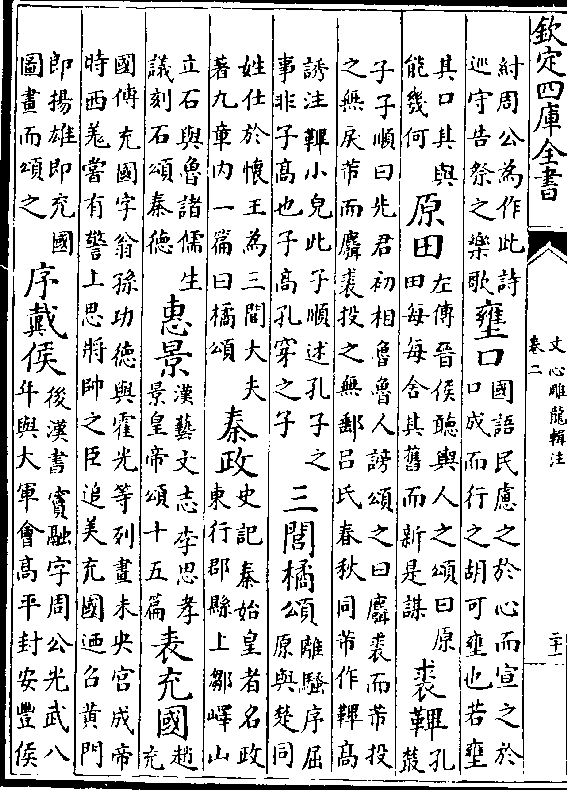 欽定四庫全書
文心雕龍輯注
卷二
二十一
紂周公為作此詩巡守告祭之樂歌 壅口 國語民慮之於心而宣之於口成而行之胡可壅也若壅
其口其與能幾何 原田 左傳晉侯聽輿人之頌曰原田每每舍其舊而新是謀 裘鞸 孔叢
子子順曰先君初相魯魯人謗頌之曰麛裘而芾投之無戾芾而麛裘投之無郵呂氏春秋同芾作鞸高
誘注鞸小兒此子順述孔子之事非子高也子高孔穿之子 三閭橘頌 離騷序屈原與楚同
姓仕於懷王為三閭大夫著九章内一篇曰橘頌 秦政 史記秦始皇者名政東行郡縣上鄒嶧山
立石與魯諸儒生議刻石頌秦德 惠景 漢藝文志李思孝景皇帝頌十五篇 表充國 趙充
國傳充國字翁孫功德與霍光等列畫未央宫成帝時西羌嘗有警上思將帥之臣追美充國迺召黄門
即揚雄即充國圖畫而頌之 序戴侯 後漢書竇融字周公光武八年與大軍會高平封安豐侯